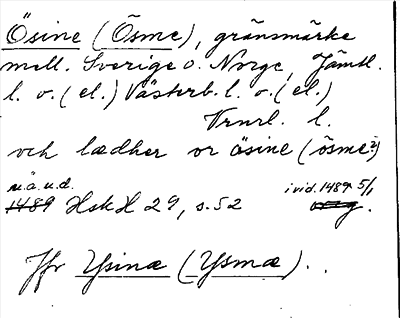 Ösine (Ösme), gränsmärke
mell. Sverige o. Norge, Jämtl.
l. o. (el.) Västerb. l. o. (el.)
Vrml. l.
och lædher or ösine (ösme?)
u.ä.u.d. ivid. 1489 5/1
1489 HskH 29, s. 52
Jfr Ysinæ (Ysmæ)..